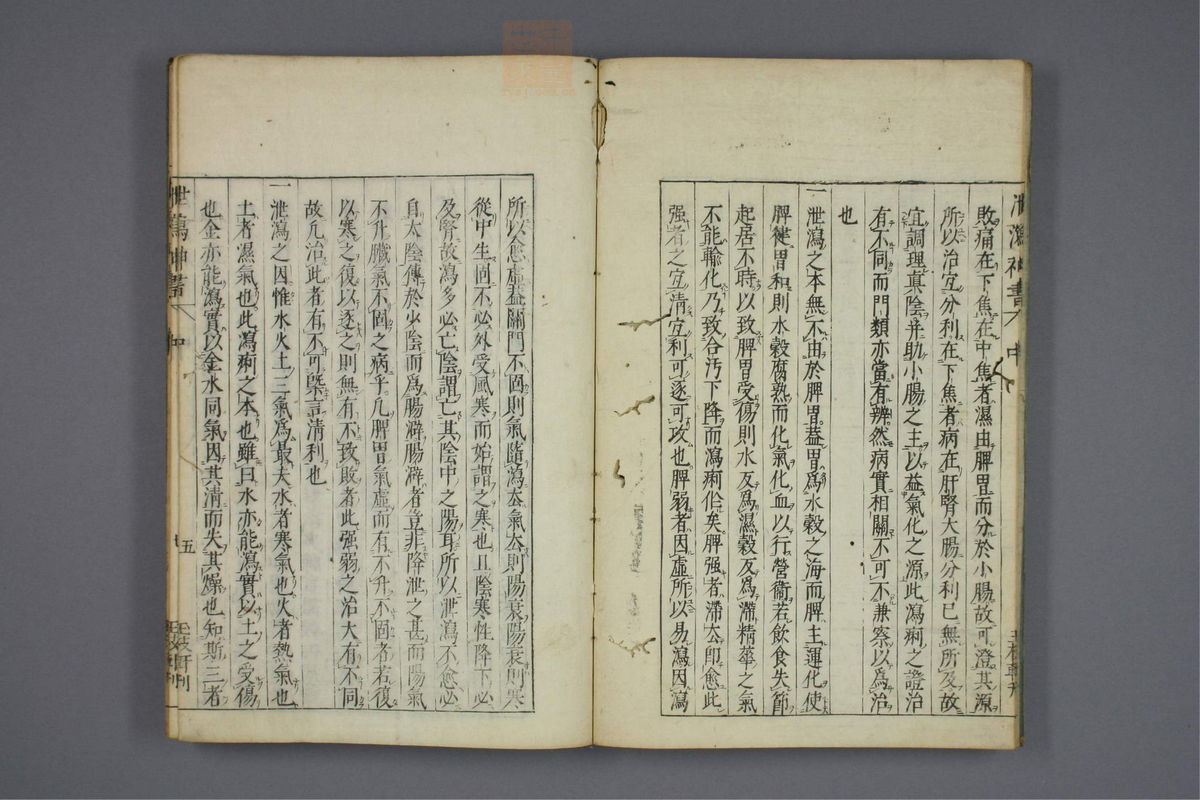 敗痛在下焦在中焦者濕由脾胃而分於小腸故可澄其源
所以治宜分利在下焦者病在肝腎大腸分利已無所及故
宜調理真陰并助小腸之主以益氣化之源此瀉痢之證治
有不同而門類亦當有辨然病實相關不可不兼察以為治
也
一泄瀉之本無不由於脾胃葢胃爲水穀之海而脾主運化使
脾健胃和則水穀腐熟而化氣化血以行營衞若飲食失節
起居不時以致脾胃受傷則水反爲濕穀反爲滯精華之氣
不能輸化乃致合汚下降而瀉痢作矣脾强者滯去卽愈此
强者之宜淸宜利可逐可攻也脾弱者因虛所以易瀉因瀉
所以愈虛葢關門不固則氣隨瀉去氣去則陽衰陽衰則寒
從中生固不必外受風寒而始謂之寒也且陰寒性降下必
及腎故瀉多必亡陰謂亡其陰中之陽耳所以泄瀉不愈必
自太陰傳於少陰而爲腸澼腸澼者豈非降泄之甚而陽氣
不升臟氣不固之病乎凡脾胃氣虛而有不升不固者若復
以寒之復以逐之則無有不致敗者此强弱之治大有不同
故凡治此者有不可槩言淸利也
一泄瀉之因惟水火土三氣爲最夫水者寒氣也火者熱氣也
土者濕氣也此瀉痢之本也雖曰水亦能瀉實以土之受傷
也金亦能瀉實以金水同氣因其淸而失其燥也知斯三者
五